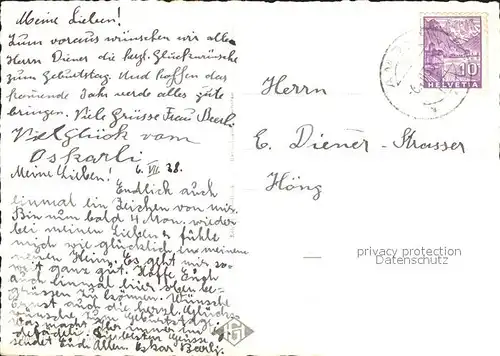 Meine Lieben!
Zum voraus wünschen wir alle
Herrn Diener die herzl. Glückwünsche
zum Geburtstag. Und hoffen das
kommende Jahr werde alles gute
bringen. Viele Grüsse Frau Berli
Viel Glück vom
Oskarli
6. VII 38.
Meine Lieben!
Endlich auch
einmal ein Zeichen von mir.
Bin nun bald 4 Mon. wieder
bei meinen Lieben & fühle
mich wie glücklich in meinem
neuen Heim. Es geht mir so-
weit ganz gut. Hoffe Euch
auch einmal hier oben be-
grüssen zu können. Wünsche
Ernst auch die herzl. Glück-
wünsche zum Geburtstag.
Was macht
Die besten Grüsse
sendet Euch Allen. Oskar Berli.
10
HELVETIA
Herrn
E. Diener-Strasser
Höng
privacy protection
Datenschutz